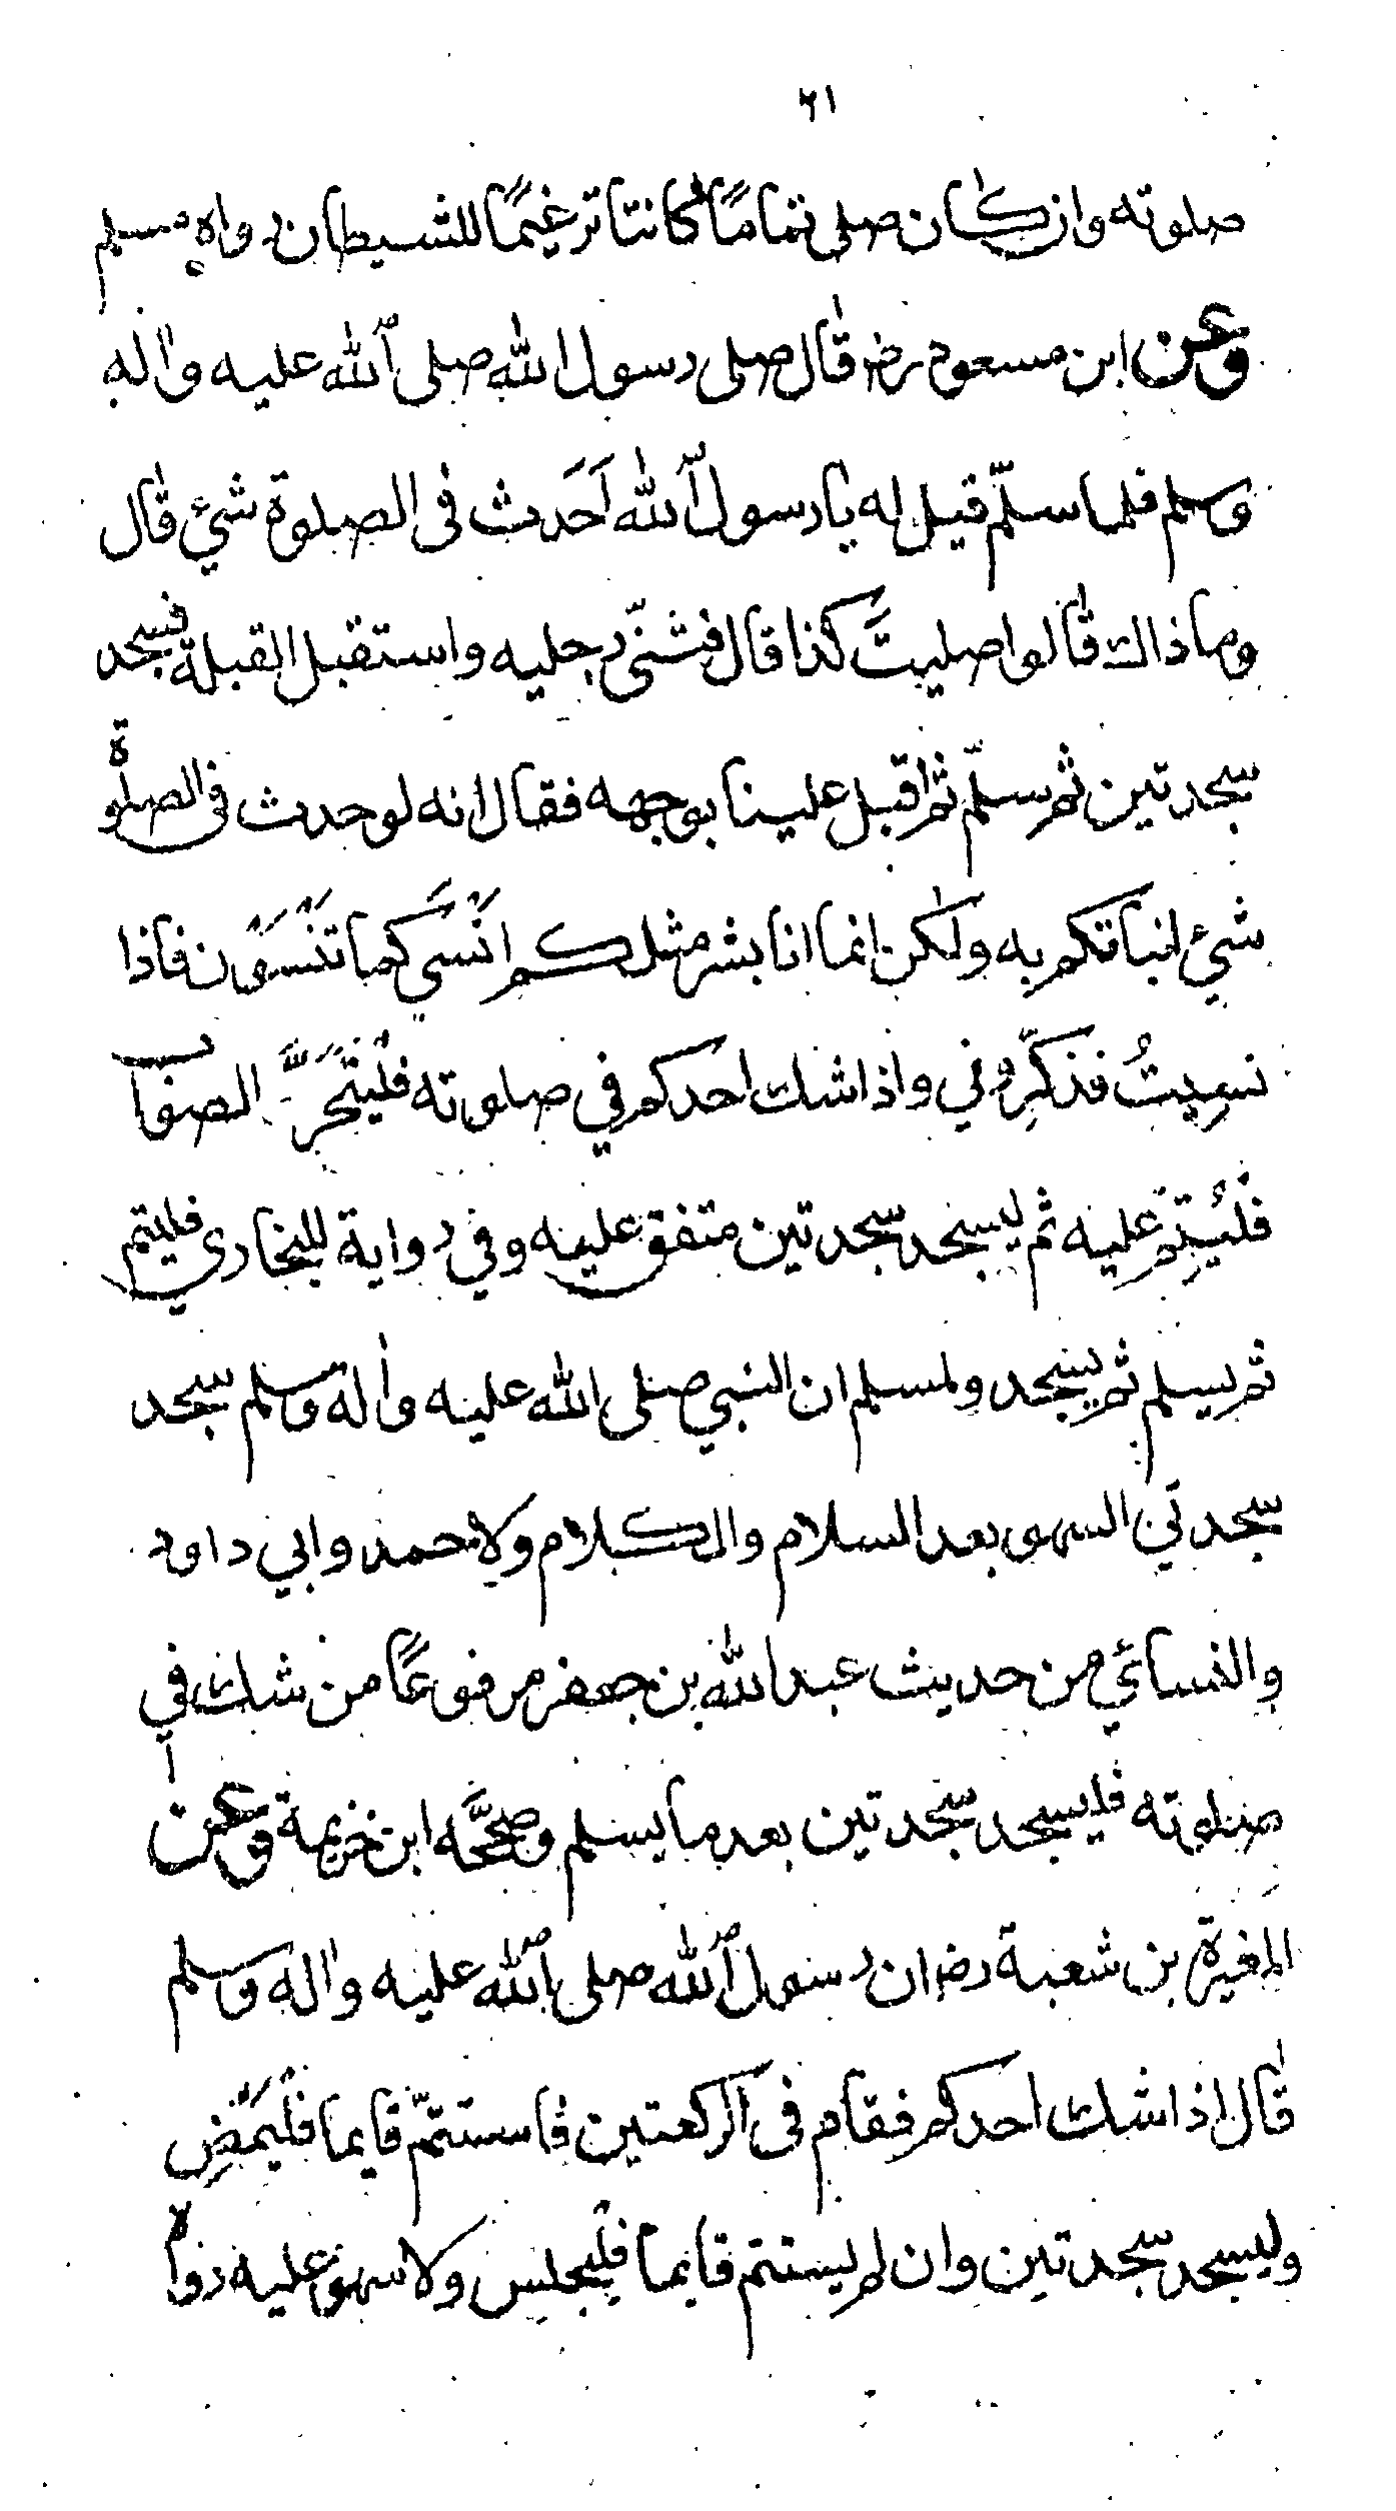 ٢١
صلوته وان كان صلى تماماً كانتا ترغيماً للشيطان رواه مسلم
وعن ابن مسعود رض قال صلى رسول الله صلى الله عليه واله
وسلم فلما سلّم قيل له يا رسول الله اَحَدث فى الصلوة شئ قال
وما ذاك قالوا صليتَ كذا قال فثنّى رجليه واستقبل القبلة فسجد
سجدتين ثم سلّم ثم اقبل علينا بوجهه فقال انه لو حدث فى الصلوة
شئ انباتكم به ولكن انما انا بشر مثلكم انْسَى كما تَنْسَوْن فاذا
نسِيتُ فذكِّروني واذا شك احدكم في صلوته فلْيَتَحَرَّ الصواب
فلْيُتِمّ عليه ثم ليسجد سجدتين متفق عليه وفي رواية للبخاري فليتم
ثم يسلم ثم يسجد ولمسلم ان النبي صلى الله عليه واله وسلم سجد
سجدتي السهو بعد السلام والكلام ولاحمد وابي داود
والنسائي من حديث عبد الله بن جعفر مرفوعاً من شك في
صلوته فليسجد سجدتين بعد ما يسلم وصححَّه ابن خزيمة وعن
المغيرة بن شعبة رض ان رسول الله صلى الله عليه واله وسلم
قال اذا شك احدكم فقام فى الركعتين فاستتمّ قايما فلْيَمْضِ
وليسجد سجدتين وان لم يستتم قايما فليجلس ولا سهو عليه رواه